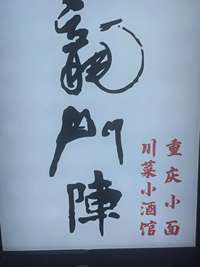 龍門陣
重庆小面
川菜小酒馆